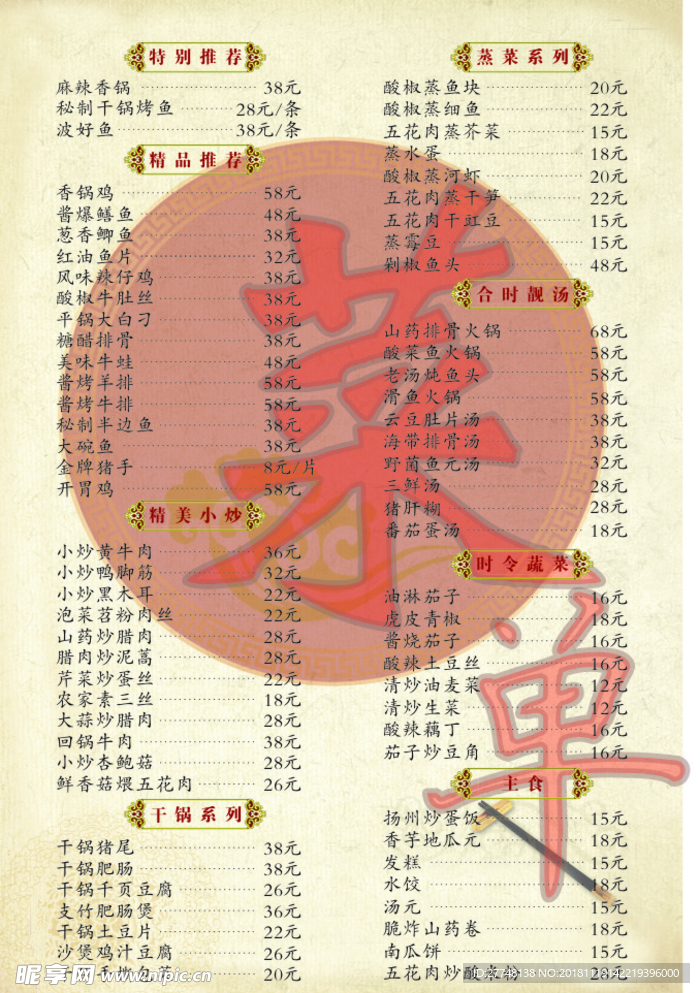 特别推荐
麻辣香锅 38元
秘制干锅烤鱼 28元/条
波好鱼 38元/条
精品推荐
香锅鸡 58元
酱爆鳝鱼 48元
葱香鲫鱼 38元
红油鱼片 32元
风味辣仔鸡 38元
酸椒牛肚丝 38元
平锅大白刁 38元
糖醋排骨 38元
美味牛蛙 48元
酱烤羊排 58元
酱烤牛排 58元
秘制半边鱼 38元
大碗鱼 38元
金牌猪手 8元/片
开胃鸡 58元
精美小炒
小炒黄牛肉 36元
小炒鸭脚筋 32元
小炒黑木耳 22元
泡菜苕粉肉丝 22元
山药炒腊肉 28元
腊肉炒泥蒿 28元
芹菜炒蛋丝 22元
农家素三丝 18元
大蒜炒腊肉 28元
回锅牛肉 38元
小炒杏鲍菇 28元
鲜香菇煨五花肉 26元
干锅系列
干锅猪尾 38元
干锅肥肠 38元
干锅千页豆腐 26元
支竹肥肠煲 36元
干锅土豆片 22元
沙煲鸡汁豆腐 26元
20元
蒸菜系列
酸椒蒸鱼块 20元
酸椒蒸细鱼 22元
五花肉蒸芥菜 15元
蒸水蛋 18元
酸椒蒸河虾 20元
五花肉蒸干笋 22元
五花肉干豇豆 15元
蒸霉豆 15元
剁椒鱼头 48元
合时靓汤
山药排骨火锅 68元
酸菜鱼火锅 58元
老汤炖鱼头 58元
滑鱼火锅 58元
云豆肚片汤 38元
海带排骨汤 38元
野菌鱼元汤 32元
三鲜汤 28元
猪肝糊 28元
番茄蛋汤 18元
时令蔬菜
油淋茄子 16元
虎皮青椒 18元
酱烧茄子 16元
酸辣土豆丝 16元
清炒油麦菜 12元
清炒生菜 12元
酸辣藕丁 16元
茄子炒豆角 16元
主食
扬州炒蛋饭 15元
香芋地瓜元 18元
发糕 15元
水饺 18元
汤元 15元
脆炸山药卷 18元
南瓜饼 15元
五花肉炒酸 粉 28元
菜单
昵享网 www.nipic.cn
ID:27748138 NO:20181119142219396000